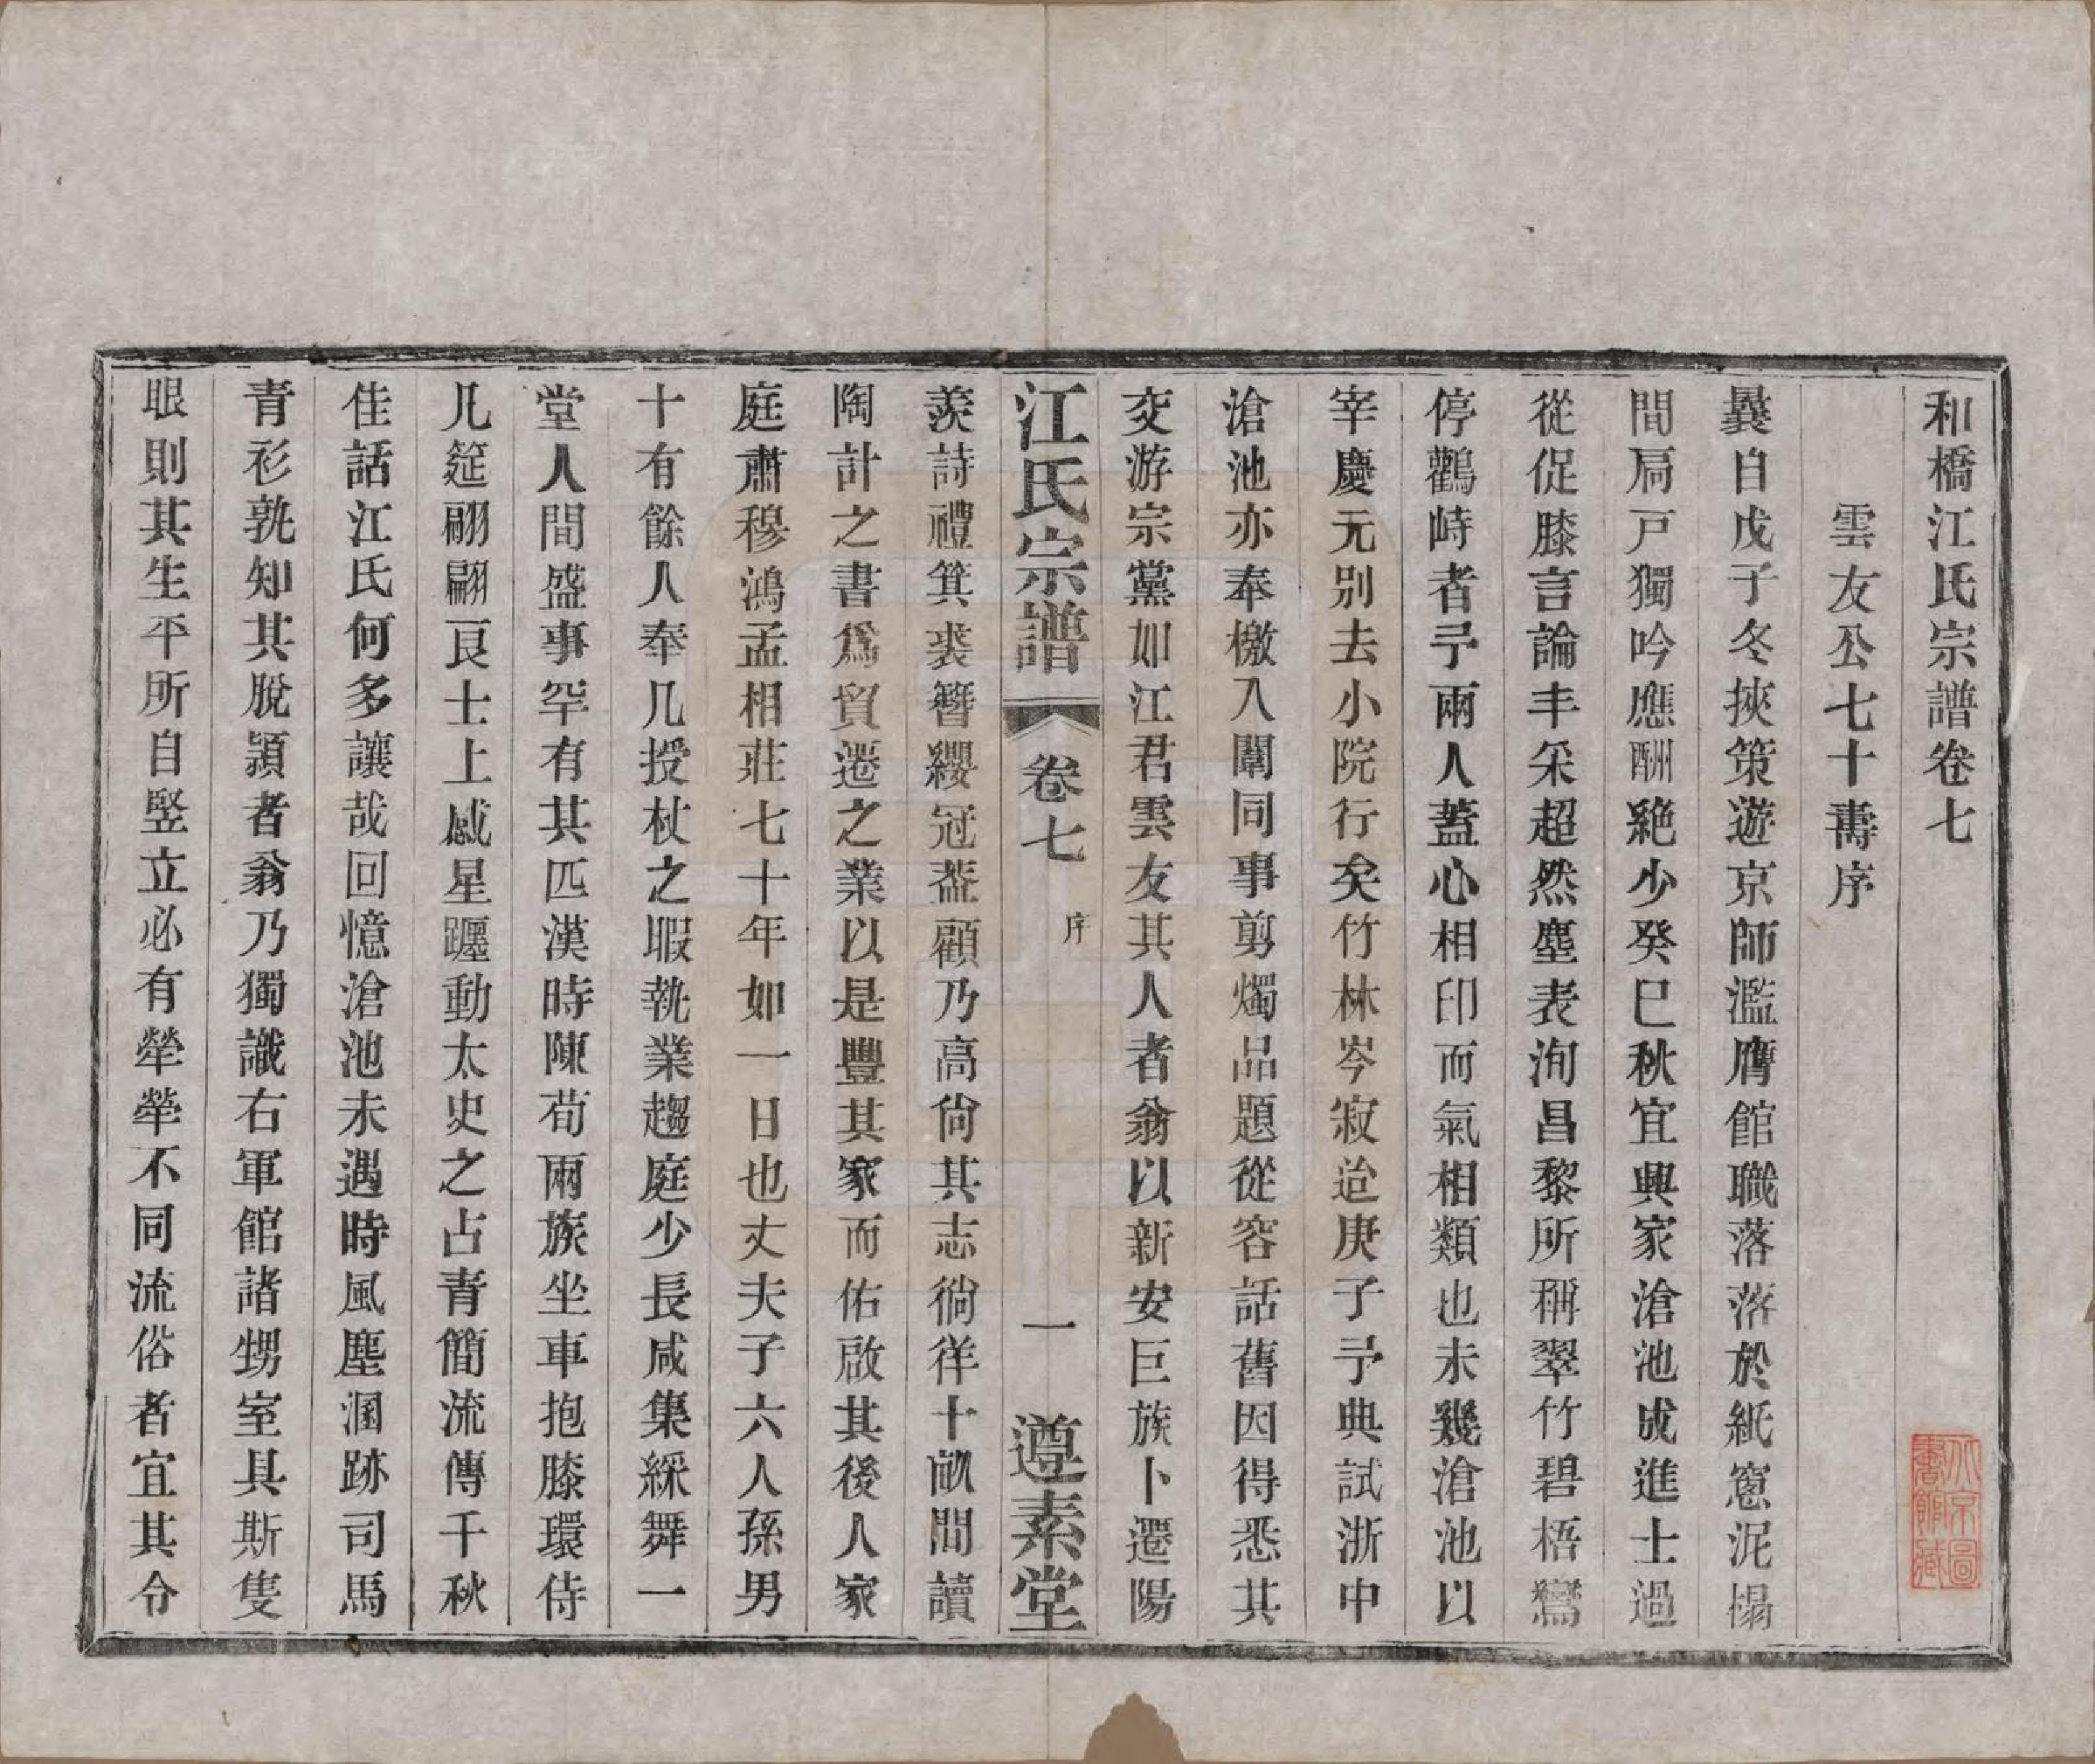 和橋江氏宗譜卷七
雲友公七十壽序
曩自戊子冬挾策遊京師濫膺館職落落於紙窗泥榻
間扃戸獨吟應酬絶少癸巳秋宜興家滄池成進士過
從促膝言論丰采超然塵表洵昌黎所稱翠竹碧梧鸞
停鸛峙者予兩人蓋心相印而氣相類也未幾滄池以
宰慶元别去小院行矣竹林岑寂迨庚子予典試浙中
滄池亦奉檄入闈同事剪燭品題從容話舊因得悉其
交游宗黨如江君雲友其人者翁以新安巨族卜遷陽
羨詩禮箕裘簪纓冠葢顧乃高尙其志徜徉十畝間讀
陶計之書爲貿遷之業以是豐其家而佑啟其後人家
庭肅穆鴻孟相莊七十年如一日也丈夫子六人孫男
十有餘人奉几授杖之暇執業趨庭少長咸集綵舞一
堂人間盛事罕有其匹漢時陳荀兩族坐車抱膝環侍
几筵翩翩良士上感星躔動太史之占青簡流傳千秋
佳話江氏何多讓哉回憶滄池未遇時風塵溷跡司馬
青衫孰知其脫穎者翁乃獨識右軍館諸甥室具斯隻
眼則其生平所自竪立必有犖犖不同流俗者宜其令
江氏宗譜
卷七
序
一
遵素堂